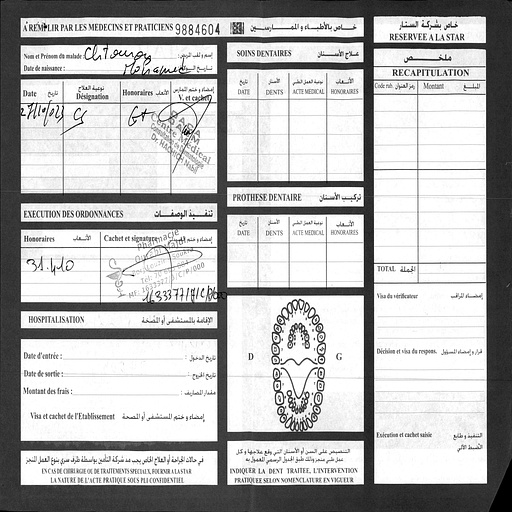 A REMPLIR PAR LES MEDECINS ET PRATICIENS 9884604 خاص بالأطباء و الممارسين
Nom et Prénom du malade : Mohamed إسم و لقب المريض :
Date de naissance : تاريخ الولادة :
Date تاريخ
Désignation نوعية العلاج
Honoraires الأتعاب
إمضاء و ختم الممارس V. et cachet
27/10/023 Cs
Centre Médical
EXECUTION DES ORDONNANCES تنفيذ الوصفات
Honoraires الأتعاب Cachet et signature
31.410
Pharmacie
1633377
HOSPITALISATION الإقامة بالمستشفى أو المصحة
Date d'entrée : تاريخ الدخول :
Date de sortie : تاريخ الخروج :
Montant des frais : مقدار المصاريف :
Visa et cachet de l'Etablissement إمضاء و ختم المستشفى أو المصحة
في حالات الجراحة أو العلاج الخاص يجب مد شركة التأمين بواسطة ظرف سري بنوع العمل المنجز
EN CAS DE CHIRURGIE OU DE TRAITEMENTS SPECIAUX, FOURNIR A LA STAR
LA NATURE DE L'ACTE PRATIQUE SOUS PLI CONFIDENTIEL
SOINS DENTAIRES علاج الأسنان
تاريخ DATE
الأسنان DENTS
نوعية العمل الطبي ACTE MEDICAL
الأتعاب HONORAIRES
PROTHESE DENTAIRE تركيب الأسنان
تاريخ DATE
الأسنان DENTS
نوعية العمل الطبي ACTE MEDICAL
الأتعاب HONORAIRES
D G
التنصيص على السن أو الأسنان التي وقع علاجها و كل
عمل طبي منجز وذلك طبق الجدول الرسمي المعمول به
INDIQUER LA DENT TRAITEE, L'INTERVENTION
PRATIQUEE SELON NOMENCLATURE EN VIGUEUR
خاص بشركة الستار
RESERVEE A LA STAR
ملخص
RECAPITULATION
Code rub. رمز العنوان Montant المبلغ
TOTAL الجملة
Visa du vérificateur إمضاء المراقب
Décision et visa du respons. قرار و إمضاء المسؤول
Exécution et cachet saisie التنفيذ و طابع
الضبط الآلي